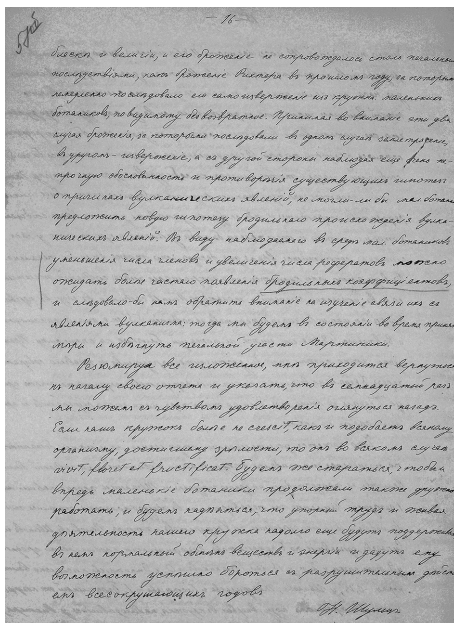 — 16 —
блескъ и величіи, и его броженіе не сопровождалось столь печальными
послѣдствіями, какъ броженіе Рихтера въ прошломъ году, за которымъ
немедленно послѣдовало его самоизверженіе изъ кружка маленькихъ
ботаниковъ, по видимому безвозвратное. Принимая во вниманіе эти два
случая броженія, за которыми послѣдовали въ одномъ случаѣ
въ другомъ – изверженіе, а съ другой стороны наблюдая еще
прочную обоснованность и противорѣчія существующихъ гипотезъ
о причинахъ вулканическихъ явленій, не могли-ли бы мы
предложить новую гипотезу бродильнаго происхожденія вулка-
ническихъ явленій. Въ виду наблюдаемаго въ средѣ мал. ботаниковъ
уменьшенія числа членовъ и увеличенія числа рефератовъ можно
ожидать болѣе частаго появленія бродильныхъ коэффиціентовъ,
и слѣдовало-бы намъ обратить вниманіе на изученіе связи ихъ съ
явленіями вулканизма; тогда мы будемъ въ состояніи во время принять
мѣры и избѣгнуть печальной участи Мартиники.
Резюмируя все изложенное, мнѣ приходится вернуться
къ началу своего отчета и указать, что въ семнадцатый разъ
мы можемъ съ чувствомъ удовлетворенія оглянуться назадъ.
Если нашъ кружокъ болѣе не crescit, какъ и подобаетъ всякому
организму, достигшему зрѣлости, то онъ во всякомъ случаѣ
vivit, floret et fructificat. Будемъ же стараться, чтобы и
впредь маленькіе ботаники продолжали также дружно
работать, и будемъ надѣяться, что упорный трудъ и живая
дѣятельность нашего кружка надолго еще будутъ поддерживать
въ немъ нормальный обмѣнъ веществъ и энергіи и дадутъ ему
возможность успѣшно бороться съ разрушительнымъ дѣйстві-
емъ всесокрушающихъ годовъ